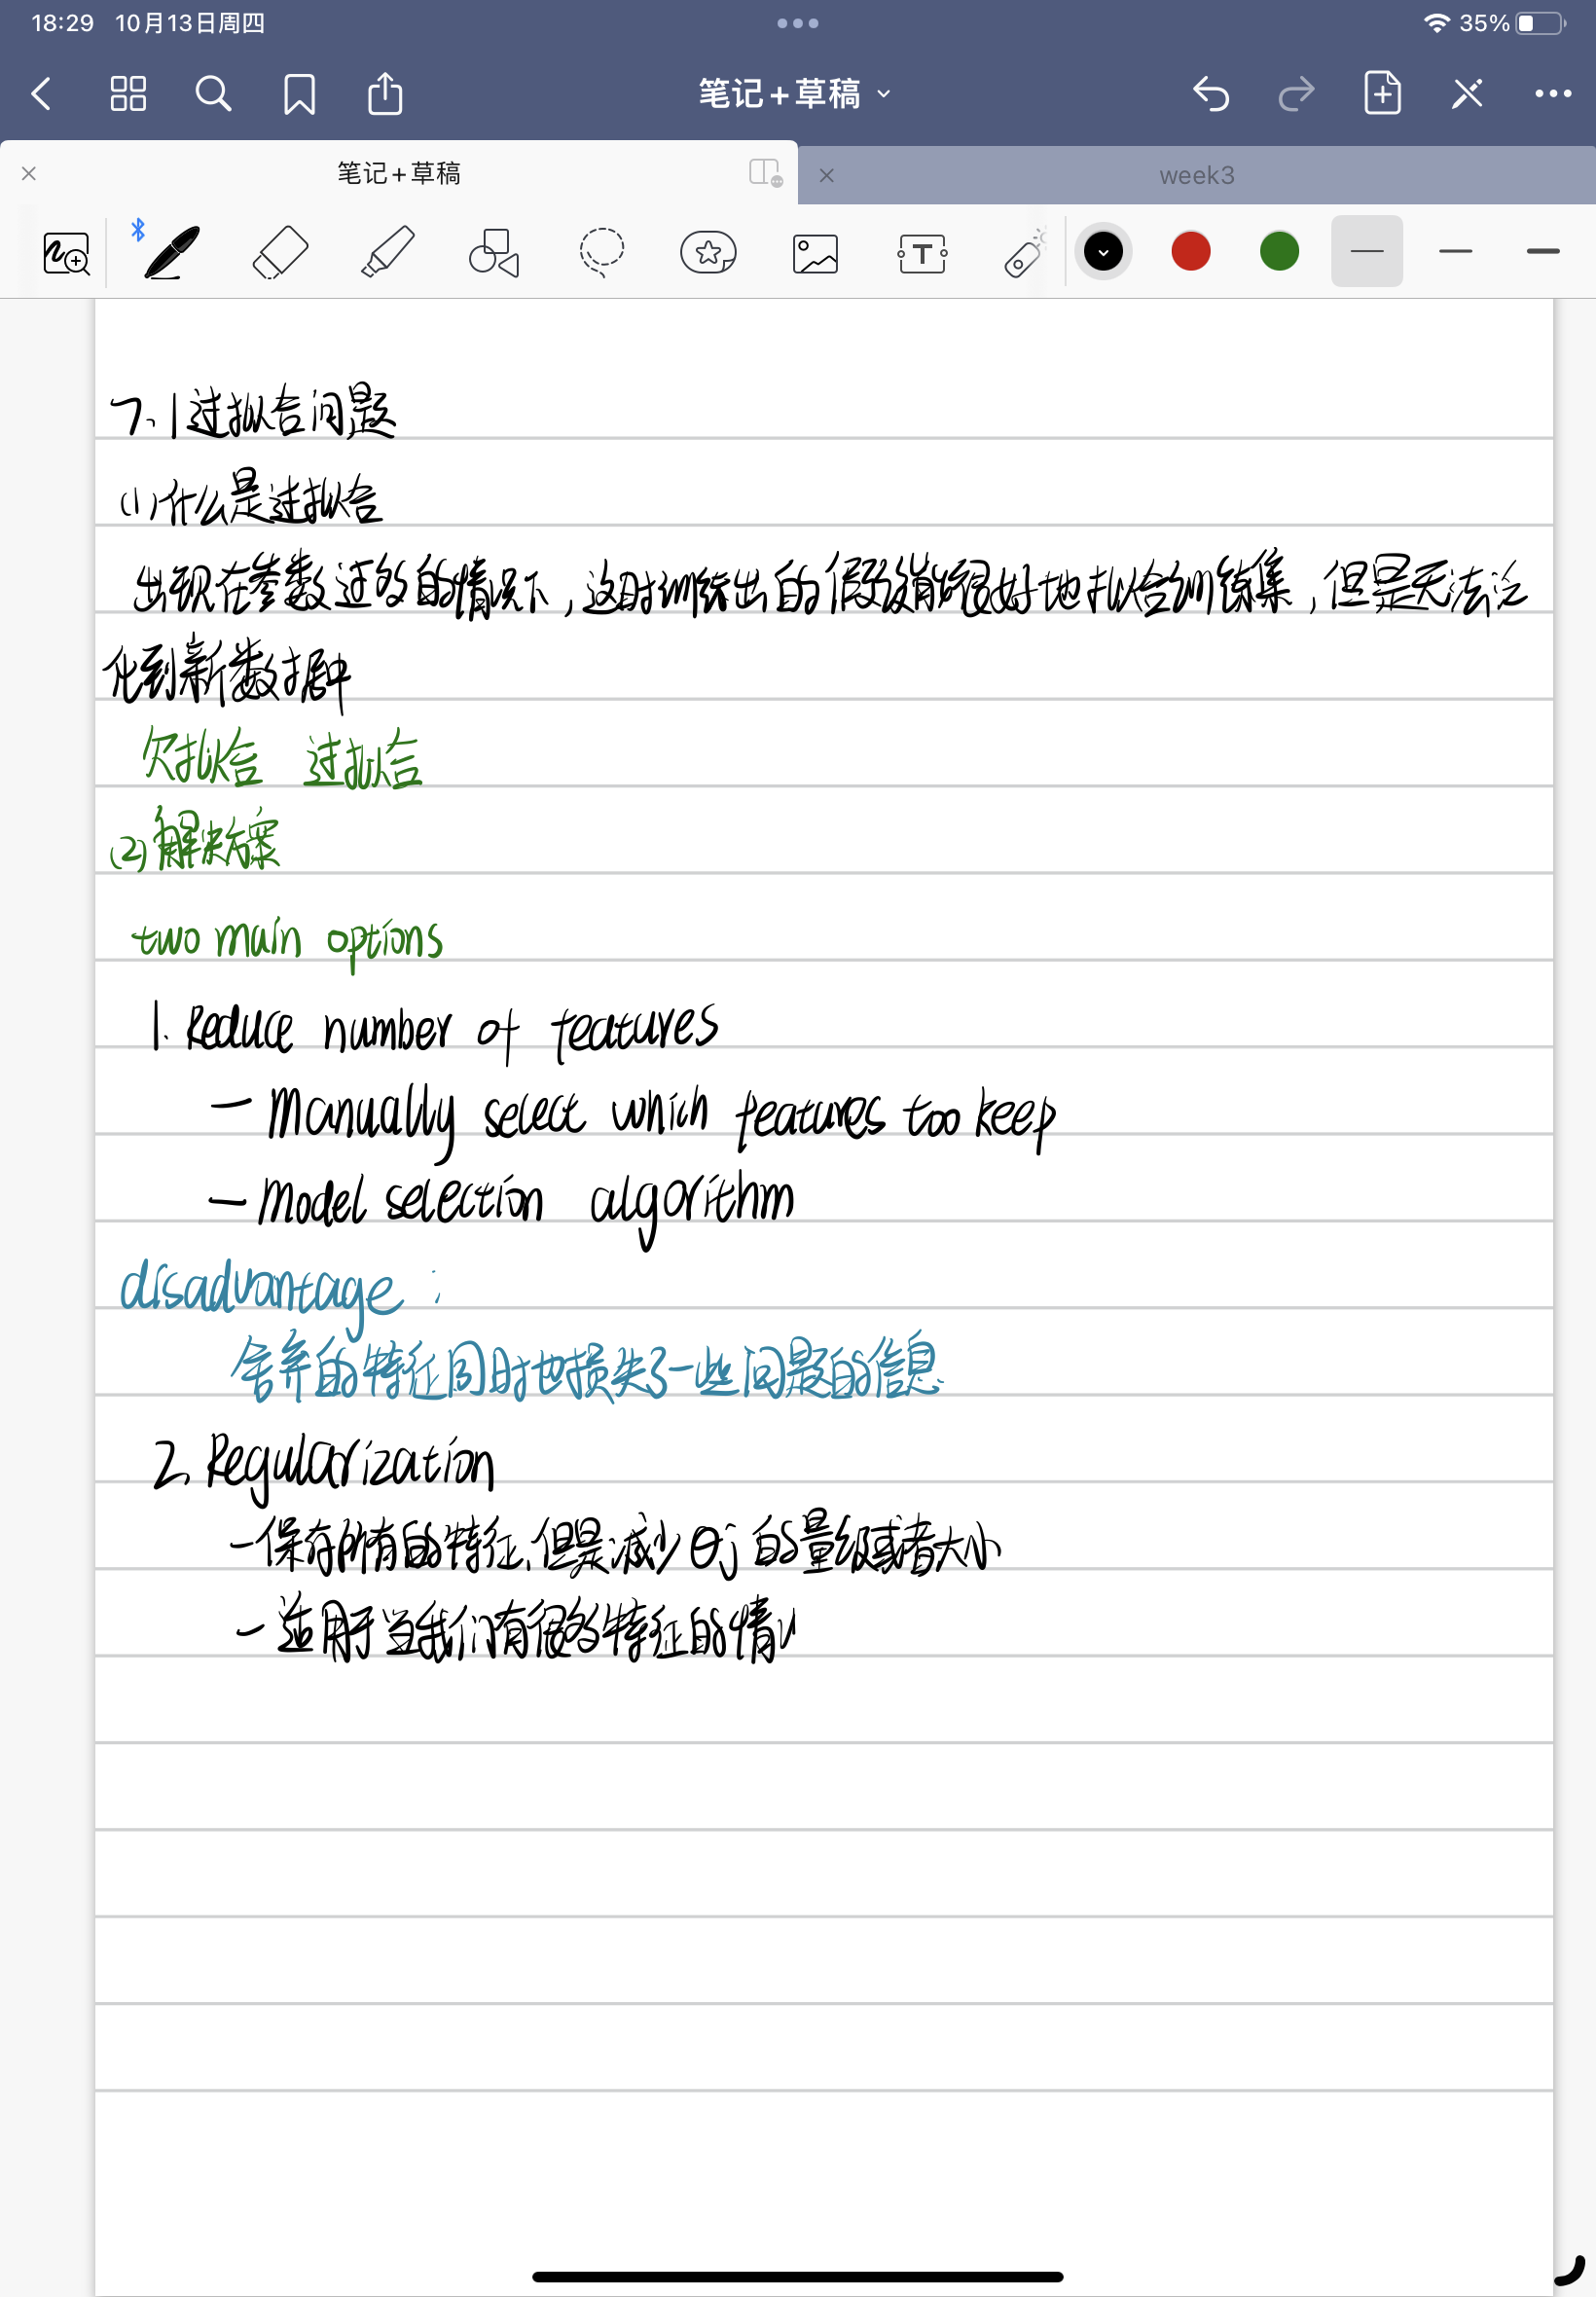 18:29 10月13日周四
35%
笔记+草稿
笔记+草稿
week3
7.1过拟合问题
(1)什么是过拟合
出现在参数过多的情况下,这时训练出的假设能很好地拟合训练集,但是无法泛
化到新数据中
欠拟合 过拟合
(2)解决方案
two main options
1. Reduce number of features
— Manually select which features too keep
— Model selection algorithm
disadvantage:
舍弃的特征同时也损失了一些问题的信息
2. Regularization
-保存所有的特征,但是减少θj的量级或者大小
-适用于当我们有很多特征的情